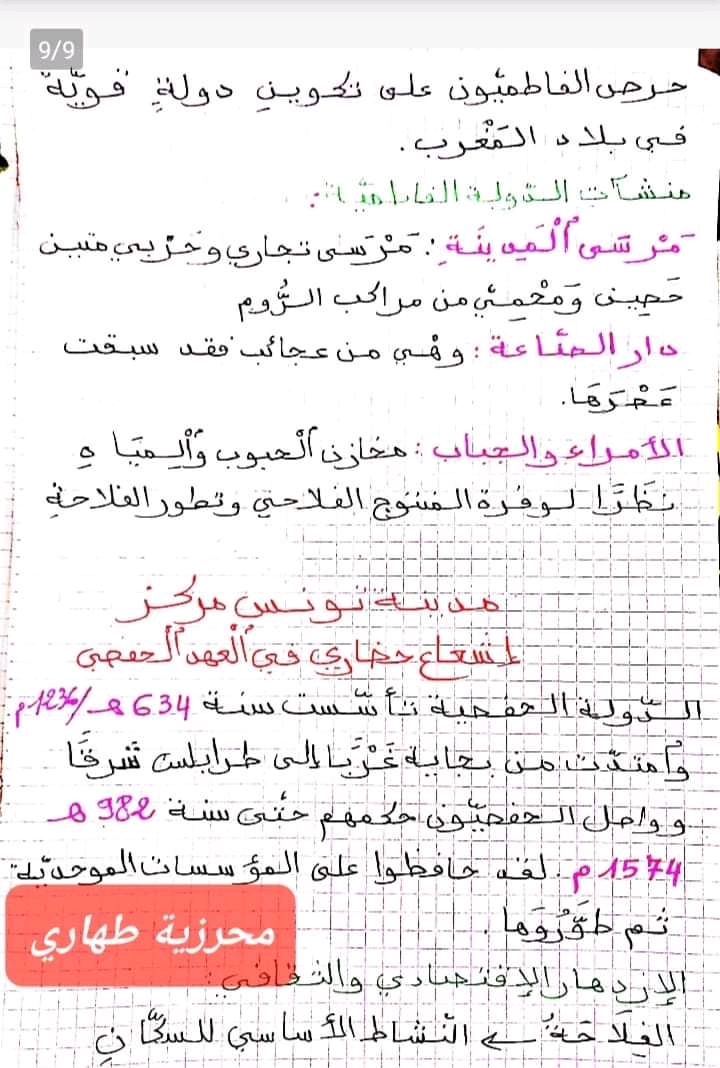 9/9
حرص الفاطميّون على تكوينِ دولةٍ قويّة
في بلاد المَغْرب.
منشآت الدّولة الفاطميّة:
مَرْسَى اَلْمَدِينَةِ: مَرْسى تجاري وحَرْبي متين
حَصِين وَمَحْمِيّ من مراكب الرُّوم
دار الصّناعة: وهْي من عجائب فقد سبقت
عَصْرَهَا.
الأمراء والجباب: مخازن اَلْحبوب وَاَلْمِيَاهِ
نَظَرًا لوفرة المنتوج الفلاحي وتطور الفلاحةِ
مدينة تونس مركز
إشعاع حضاري في اَلْعهد اَلْحفصي
الدّولة الحفصية تأسّست سنة 634 هـ/1236م
وَاُمتدّت من بجاية غَرْبًا إلى طرابلس شَرقًا
وواصل الحفصيّون حكمهم حتّى سنة 982 هـ
1574 م. لقد حافظوا على المؤسسات الموحديّة
ثم طَوَّرُوها.
محرزية طهاري
الإزدهار الإقتصادي والثقافي:
الفِلَاحَةُ ← النّشاط الأساسي للسكّانِ